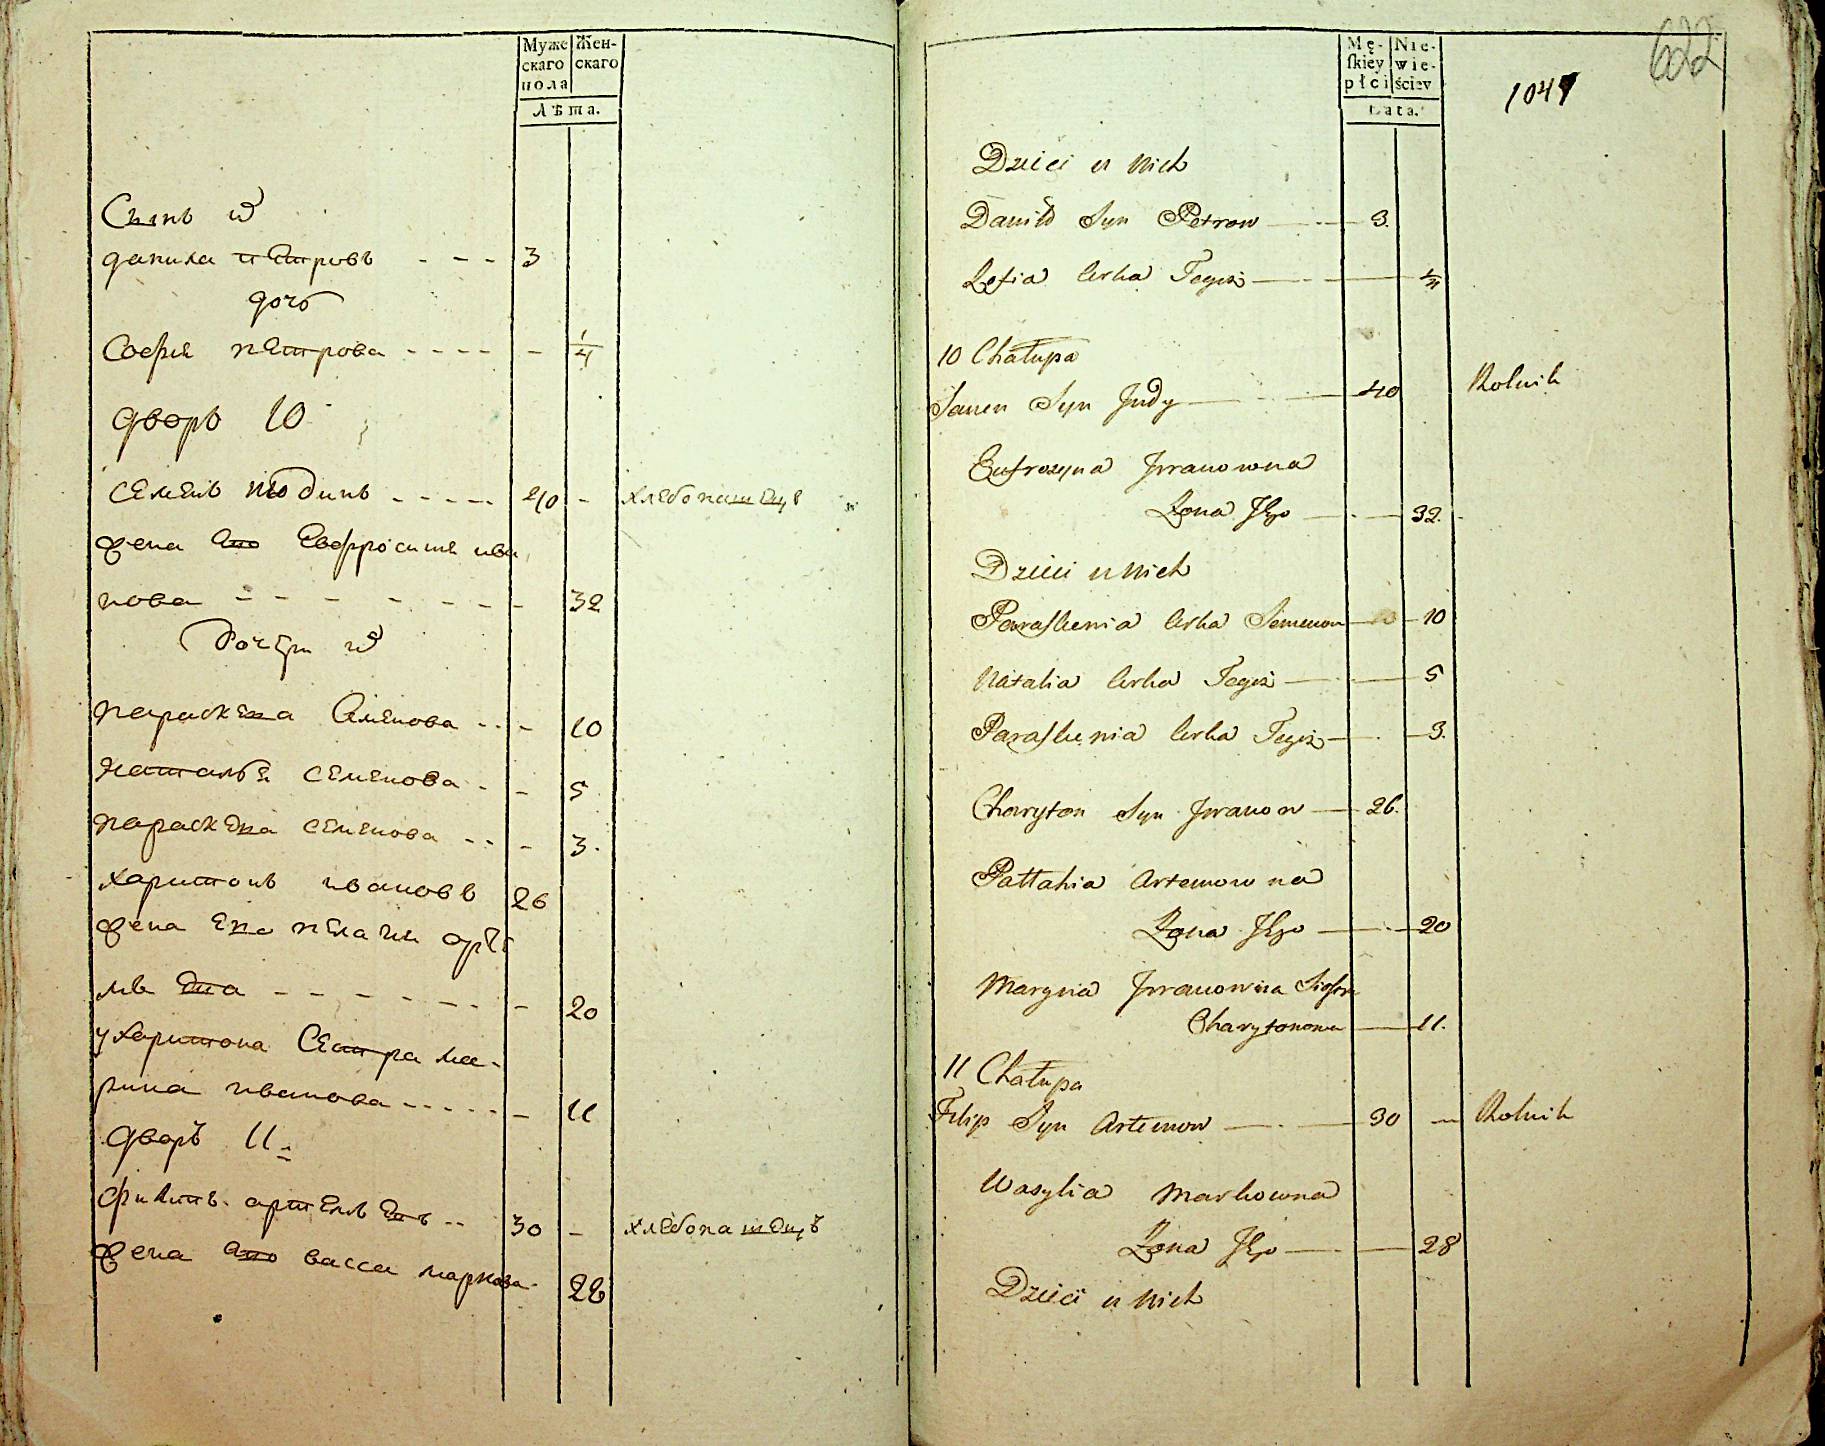 Муже
скаго
пола
Жен-
скаго
Лѣта.
Сынъ
данила петровъ - - - 3
дочь
Софія петрова - - - - - 1/4
дворъ 10
семенъ юдинъ - - - - - 40 - хлебопашецъ
жена его Евфросинія ива
нова - - - - - - - - 32
дочери
параскева Семенова - - - 10
наталья семенова - - 5
параскева семенова - - - 3.
харитонъ ивановъ 26
жена его пелагия арте
мьева - - - - - - - 20
у харитона Сестра ма-
рина иванова - - - - - - 11
дворъ 11
филипъ артемьевъ - - 30 - хлебопашецъ
жена его васса маркова - 28
Mę-
skiey
płci
Nie-
wie-
ściey
Lata.
1041
622
Dzieci u Nich
Daniło Syn Petrow 3.
Zofia Corka Tegoż 1/4
10 Chałupa
Semen Syn Judy 40 Rolnik
Eufrozyna Jwanowna
Zona Jego 32.
Dzieci u Nich
Paraskewia Corka Semenow 10
Natalia Corka Tegoż 5
Paraskewia Corka Tegoż 3.
Charyton Syn Jwanow 26.
Pałłahia Artemowna
Zona Jego 20
Maryna Jwanowna Siostra
Charytonowa 11.
11 Chałupa
Filip Syn Artemow 30 Rolnik
Wasylia Markowna
Zona Jego 28
Dzieci u Nich